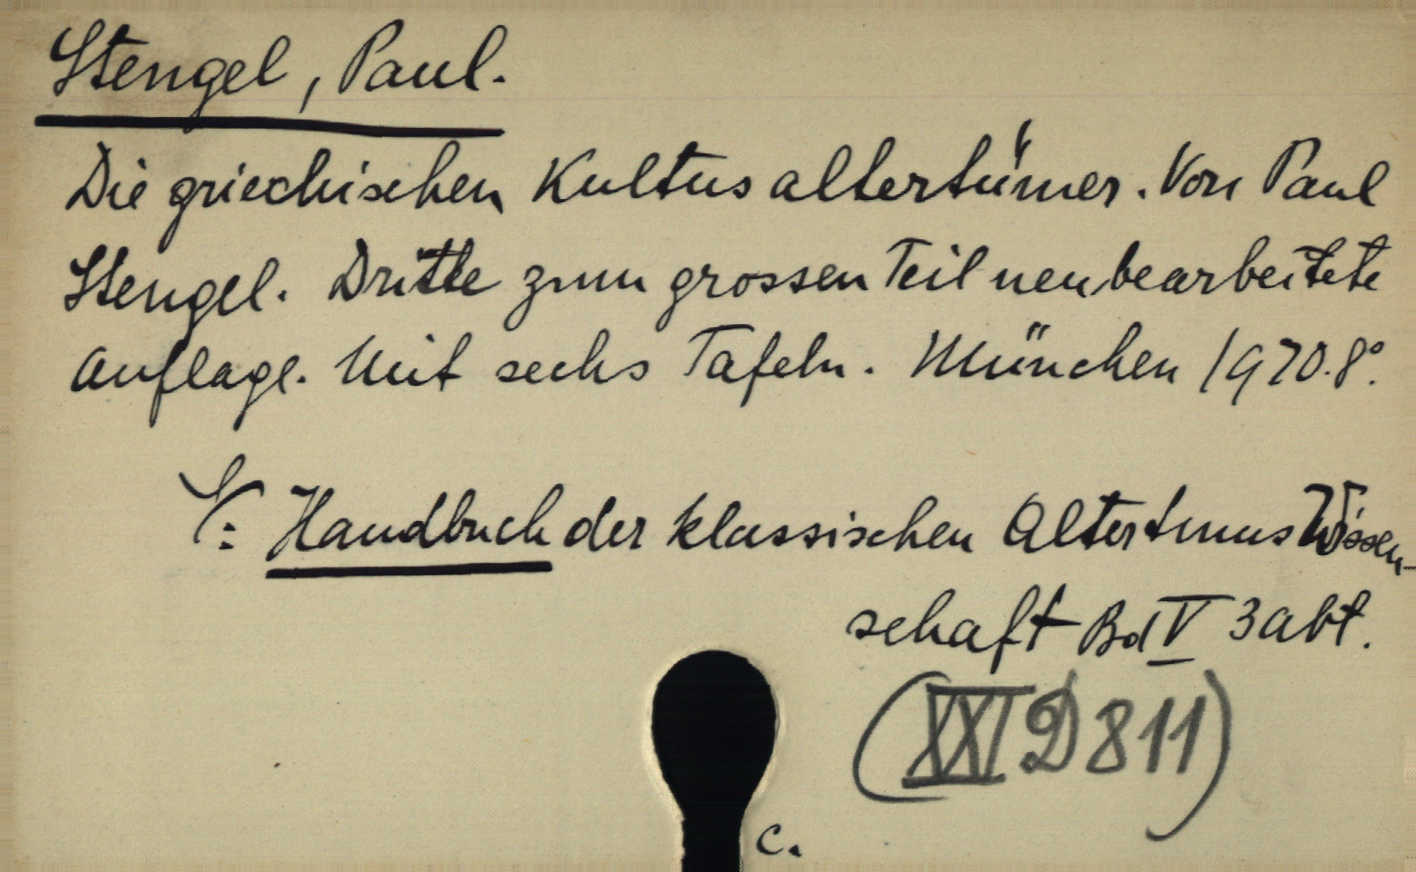 Stengel, Paul.
Die griechischen Kultusaltertümer. Von Paul
Stengel. Dritte zum grossen Teil neubearbeitete
Auflage. Mit sechs Tafeln. München 1920. 8°.
Handbuch der klassischen Altertumswissen-
schaft Bd V 3 abt.
(XXI D 811)
c.